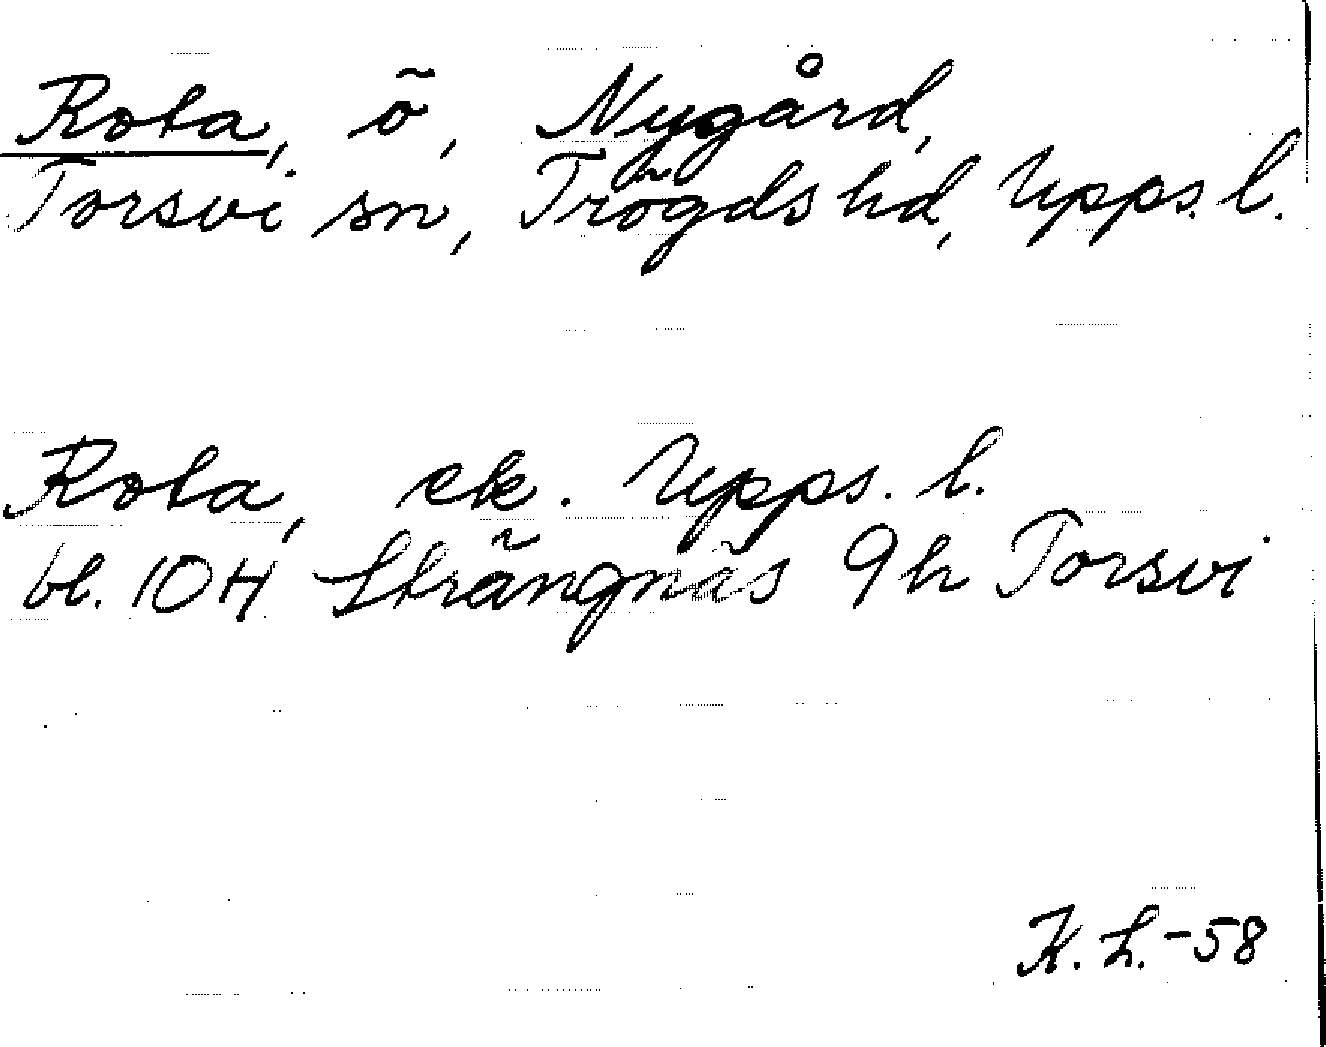 Rota, ö, Nygård,
Torsvi sn, Trögds hd, Upps. l.
Rota, ek. Upps. l.
bl. 10H Strängnäs 9h Torsvi
K. L. -58